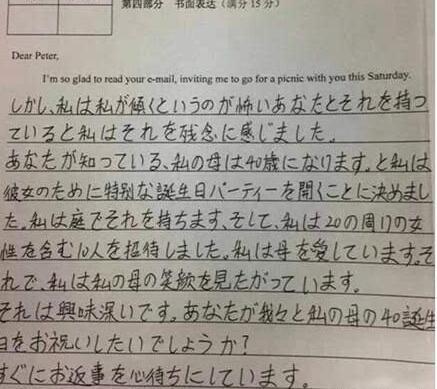 第四部分 书面表达（满分15分）
Dear Peter,
I'm so glad to read your e-mail, inviting me to go for a picnic with you this Saturday.
しかし、私は私が傾くというのが怖いあなたとそれを持つ
ていると私はそれを残念に感じました。
あなたが知っている、私の母は40歳になります。と私は
彼女のために特別な誕生日パーティーを開くことに決めまし
た。私は庭でそれを持ちます、そして、私は20の周りの女
性を含む10人を招待しました。私は母を愛しています。そ
れで、私は私の母の笑顔を見たがっています。
それは興味深いです。あなたが我々と私の母の40誕生
日をお祝いしたいでしょうか?
すぐにお返事を心待ちにしています。